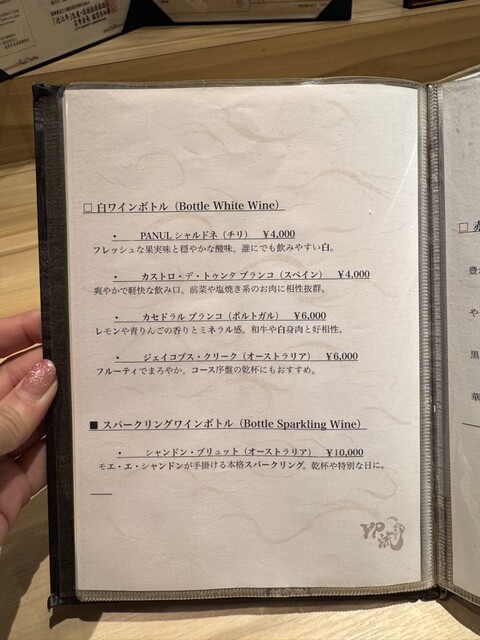 □ 白ワインボトル（Bottle White Wine）
・ PANUL シャルドネ（チリ） ￥4,000
フレッシュな果実味と穏やかな酸味。誰にでも飲みやすい白。
・ カストロ・デ・トゥンタ ブランコ（スペイン） ￥4,000
爽やかで軽快な飲み口。前菜や塩焼き系のお肉に相性抜群。
・ カセドラル ブランコ（ポルトガル） ￥6,000
レモンや青りんごの香りとミネラル感。和牛や白身肉と好相性。
・ ジェイコブス・クリーク（オーストラリア） ￥6,000
フルーティでまろやか。コース序盤の乾杯にもおすすめ。
■ スパークリングワインボトル（Bottle Sparkling Wine）
・ シャンドン・ブリュット（オーストラリア） ￥10,000
モエ・エ・シャンドンが手掛ける本格スパークリング。乾杯や特別な日に。
□ 赤
豊
や
黒
華